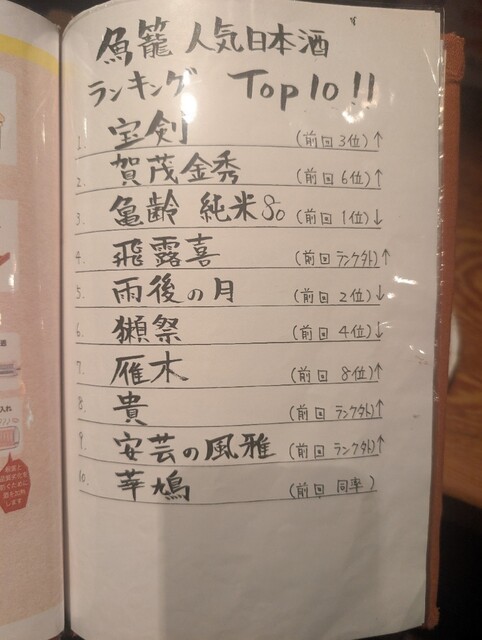 魚籠 人気日本酒
ランキング Top10!!
1. 宝剣 (前回 3位)↑
2. 賀茂金秀 (前回 6位)↑
3. 亀齢 純米80 (前回 1位)↓
4. 飛露喜 (前回 ランク外)↑
5. 雨後の月 (前回 2位)↓
6. 獺祭 (前回 4位)↓
7. 雁木 (前回 8位)↑
8. 貴 (前回 ランク外)↑
9. 安芸の風雅 (前回 ランク外)↑
10. 華鳩 (前回 同率)